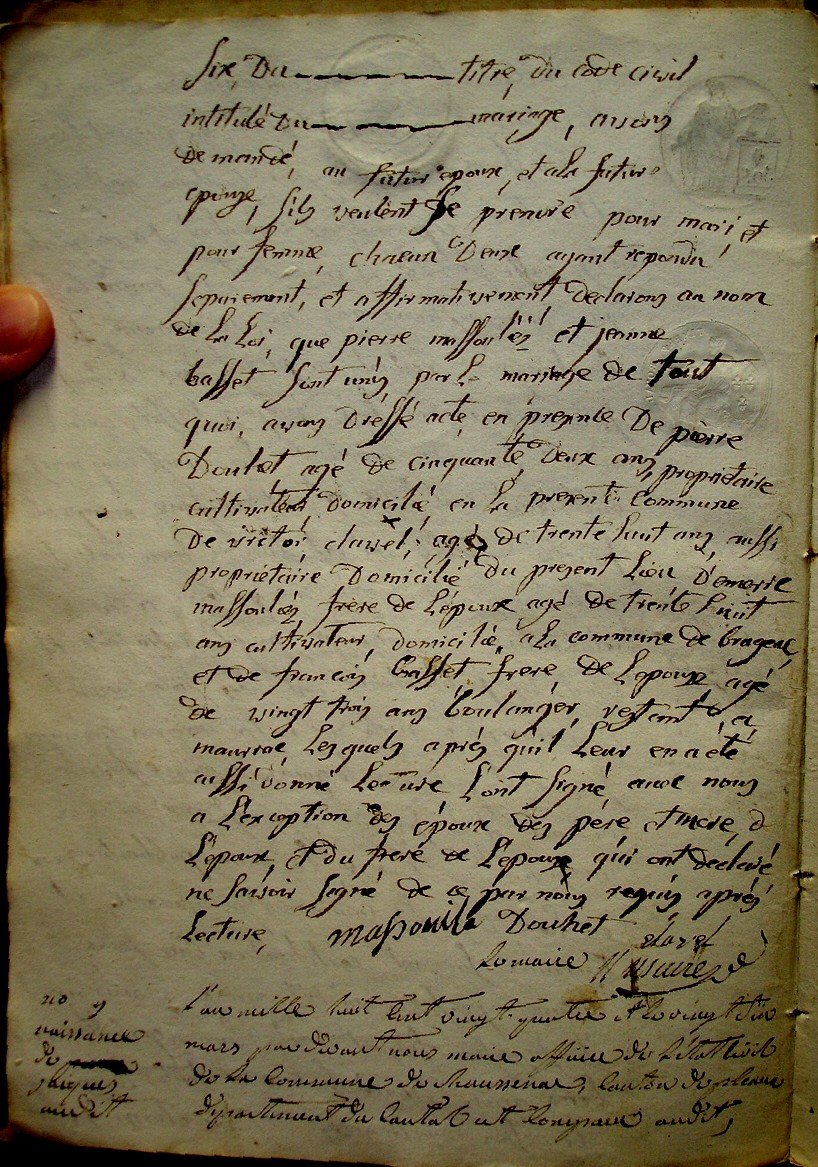 six du titre du code civil
intitulé du mariage, avons
demandé, au futur epoux, et ala future
epouze, sils veulent se prendre pour mari, et
pour femme, chacun deux ayant repondu
séparement, et affirmativement declarons au nom
de la Loi, que pierre massouliéz et jeanne
basset sont unis par le mariage de tout
quoi, avons dréssé acte en presence De pierre
Douhet agé de cinquante, deux ans, propriétaire
cultivateur, domicilié en la presente commune
De victor clavel, agé de trente huit ans, aussi
propriétaire Domicilié du present Lieu D'
massouliéz frère de L'époux agé de trente huit
ans cultivateur, domicilié, a la commune de brageac,
et de francois basset frere de Lepouze agé
de vingt trois ans boulanger, restant, a
mauriac Lesquels aprés quil Leur en a été
aussi donné Lecture L'ont signé avec nous
a L'exception des époux des père et mere, d
L'époux, et du frere de L'epouze qui ont declaré
ne savoir signé de ce par nous requis aprés
Lecture, massoulie Douhet clavel
Le maire
no 9
naissance
de
audit
L'an mille huit cent vingt quatre et le vingt dix
mars par devant nous maire officier de L'état civil
de la Commune de Chaussenac, Canton de pleaux
département du Cantal est Comparu audit,